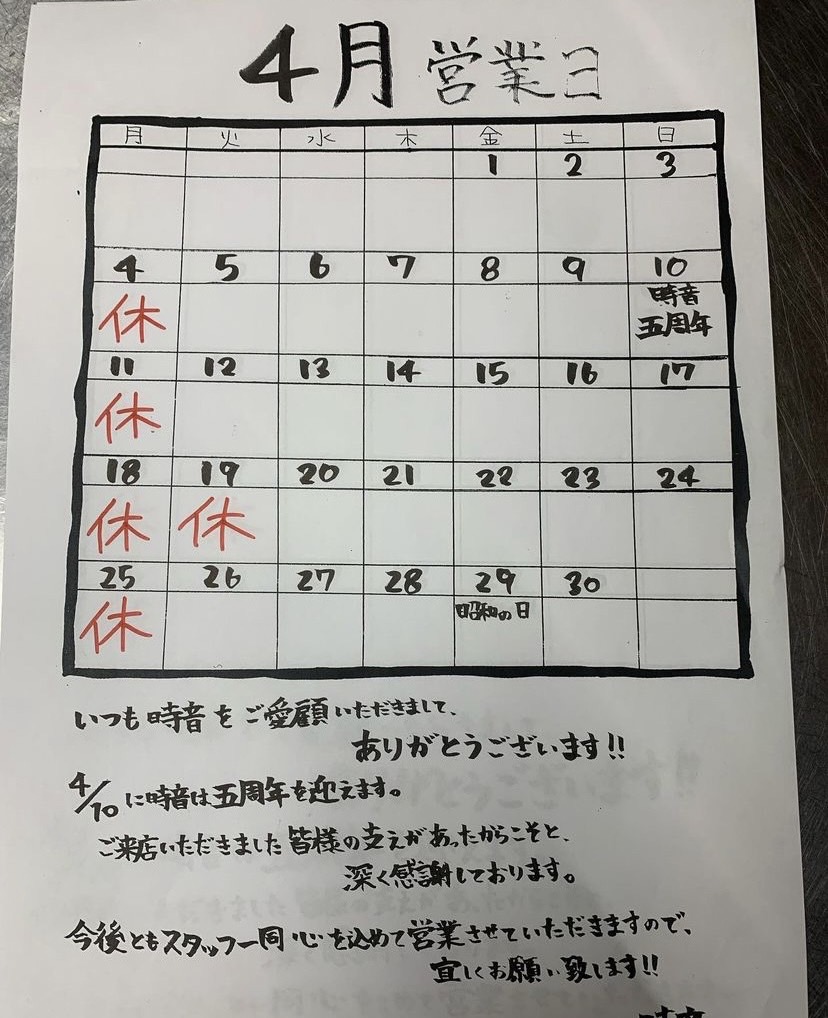 4月 営業日
月 火 水 木 金 土 日
1 2 3
4 5 6 7 8 9 10
休 時音
五周年
11 12 13 14 15 16 17
休
18 19 20 21 22 23 24
休 休
25 26 27 28 29 30
休 昭和の日
いつも時音をご愛顧いただきまして、
ありがとうございます!!
4/10に時音は五周年を迎えます。
ご来店いただきました皆様の支えがあったからこそと、
深く感謝しております。
今後ともスタッフ一同心を込めて営業させていただきますので、
宜しくお願い致します!!